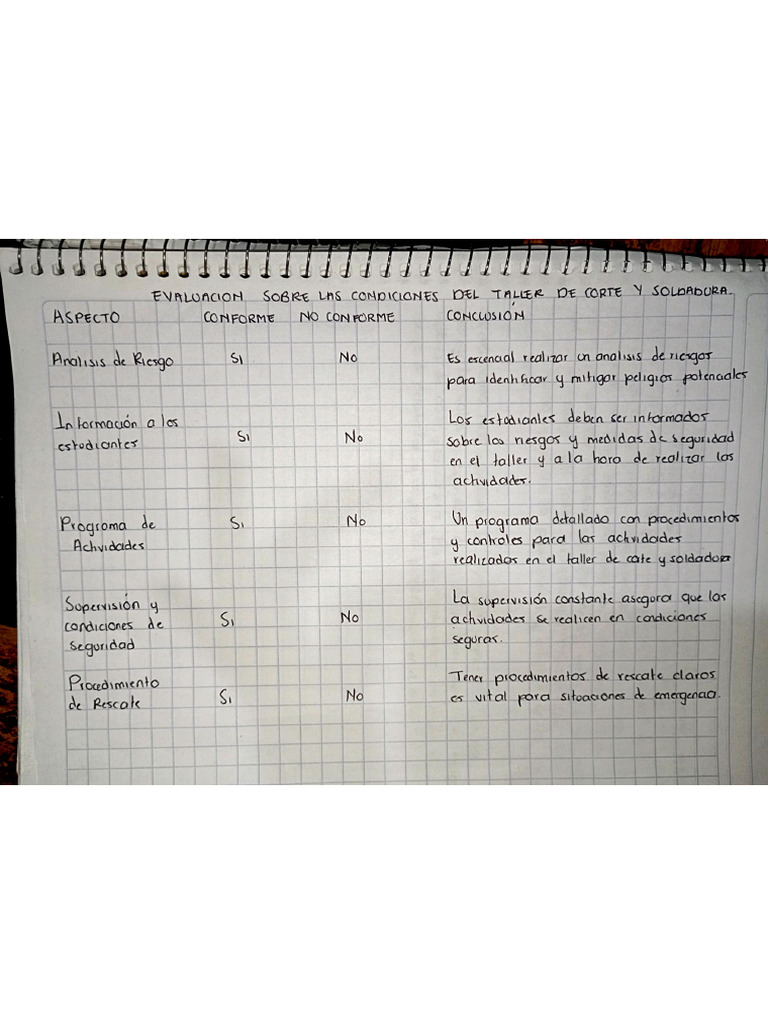 EVALUACION SOBRE LAS CONDICIONES DEL TALLER DE CORTE Y SOLDADURA.
ASPECTO CONFORME NO CONFORME CONCLUSIÓN
Analisis de Riesgo Si No Es escencial realizar un analisis de riesgos
para identificar y mitigar peligros potenciales
Información a los
estudiantes Si No
Los estudiantes deben ser informados
sobre los riesgos y medidas de seguridad
en el taller y a la hora de realizar las
actividades.
Programa de
Actividades
Si No
Un programa detallado con procedimientos
y controles para las actividades
realizados en el taller de corte y soldadura
Supervisión y
condiciones de
seguridad
Si No
La supervisión constante asegura que las
actividades se realicen en condiciones
seguras.
Procedimiento
de Rescate
Si No
Tener procedimientos de rescate claros
es vital para situaciones de emergencia.